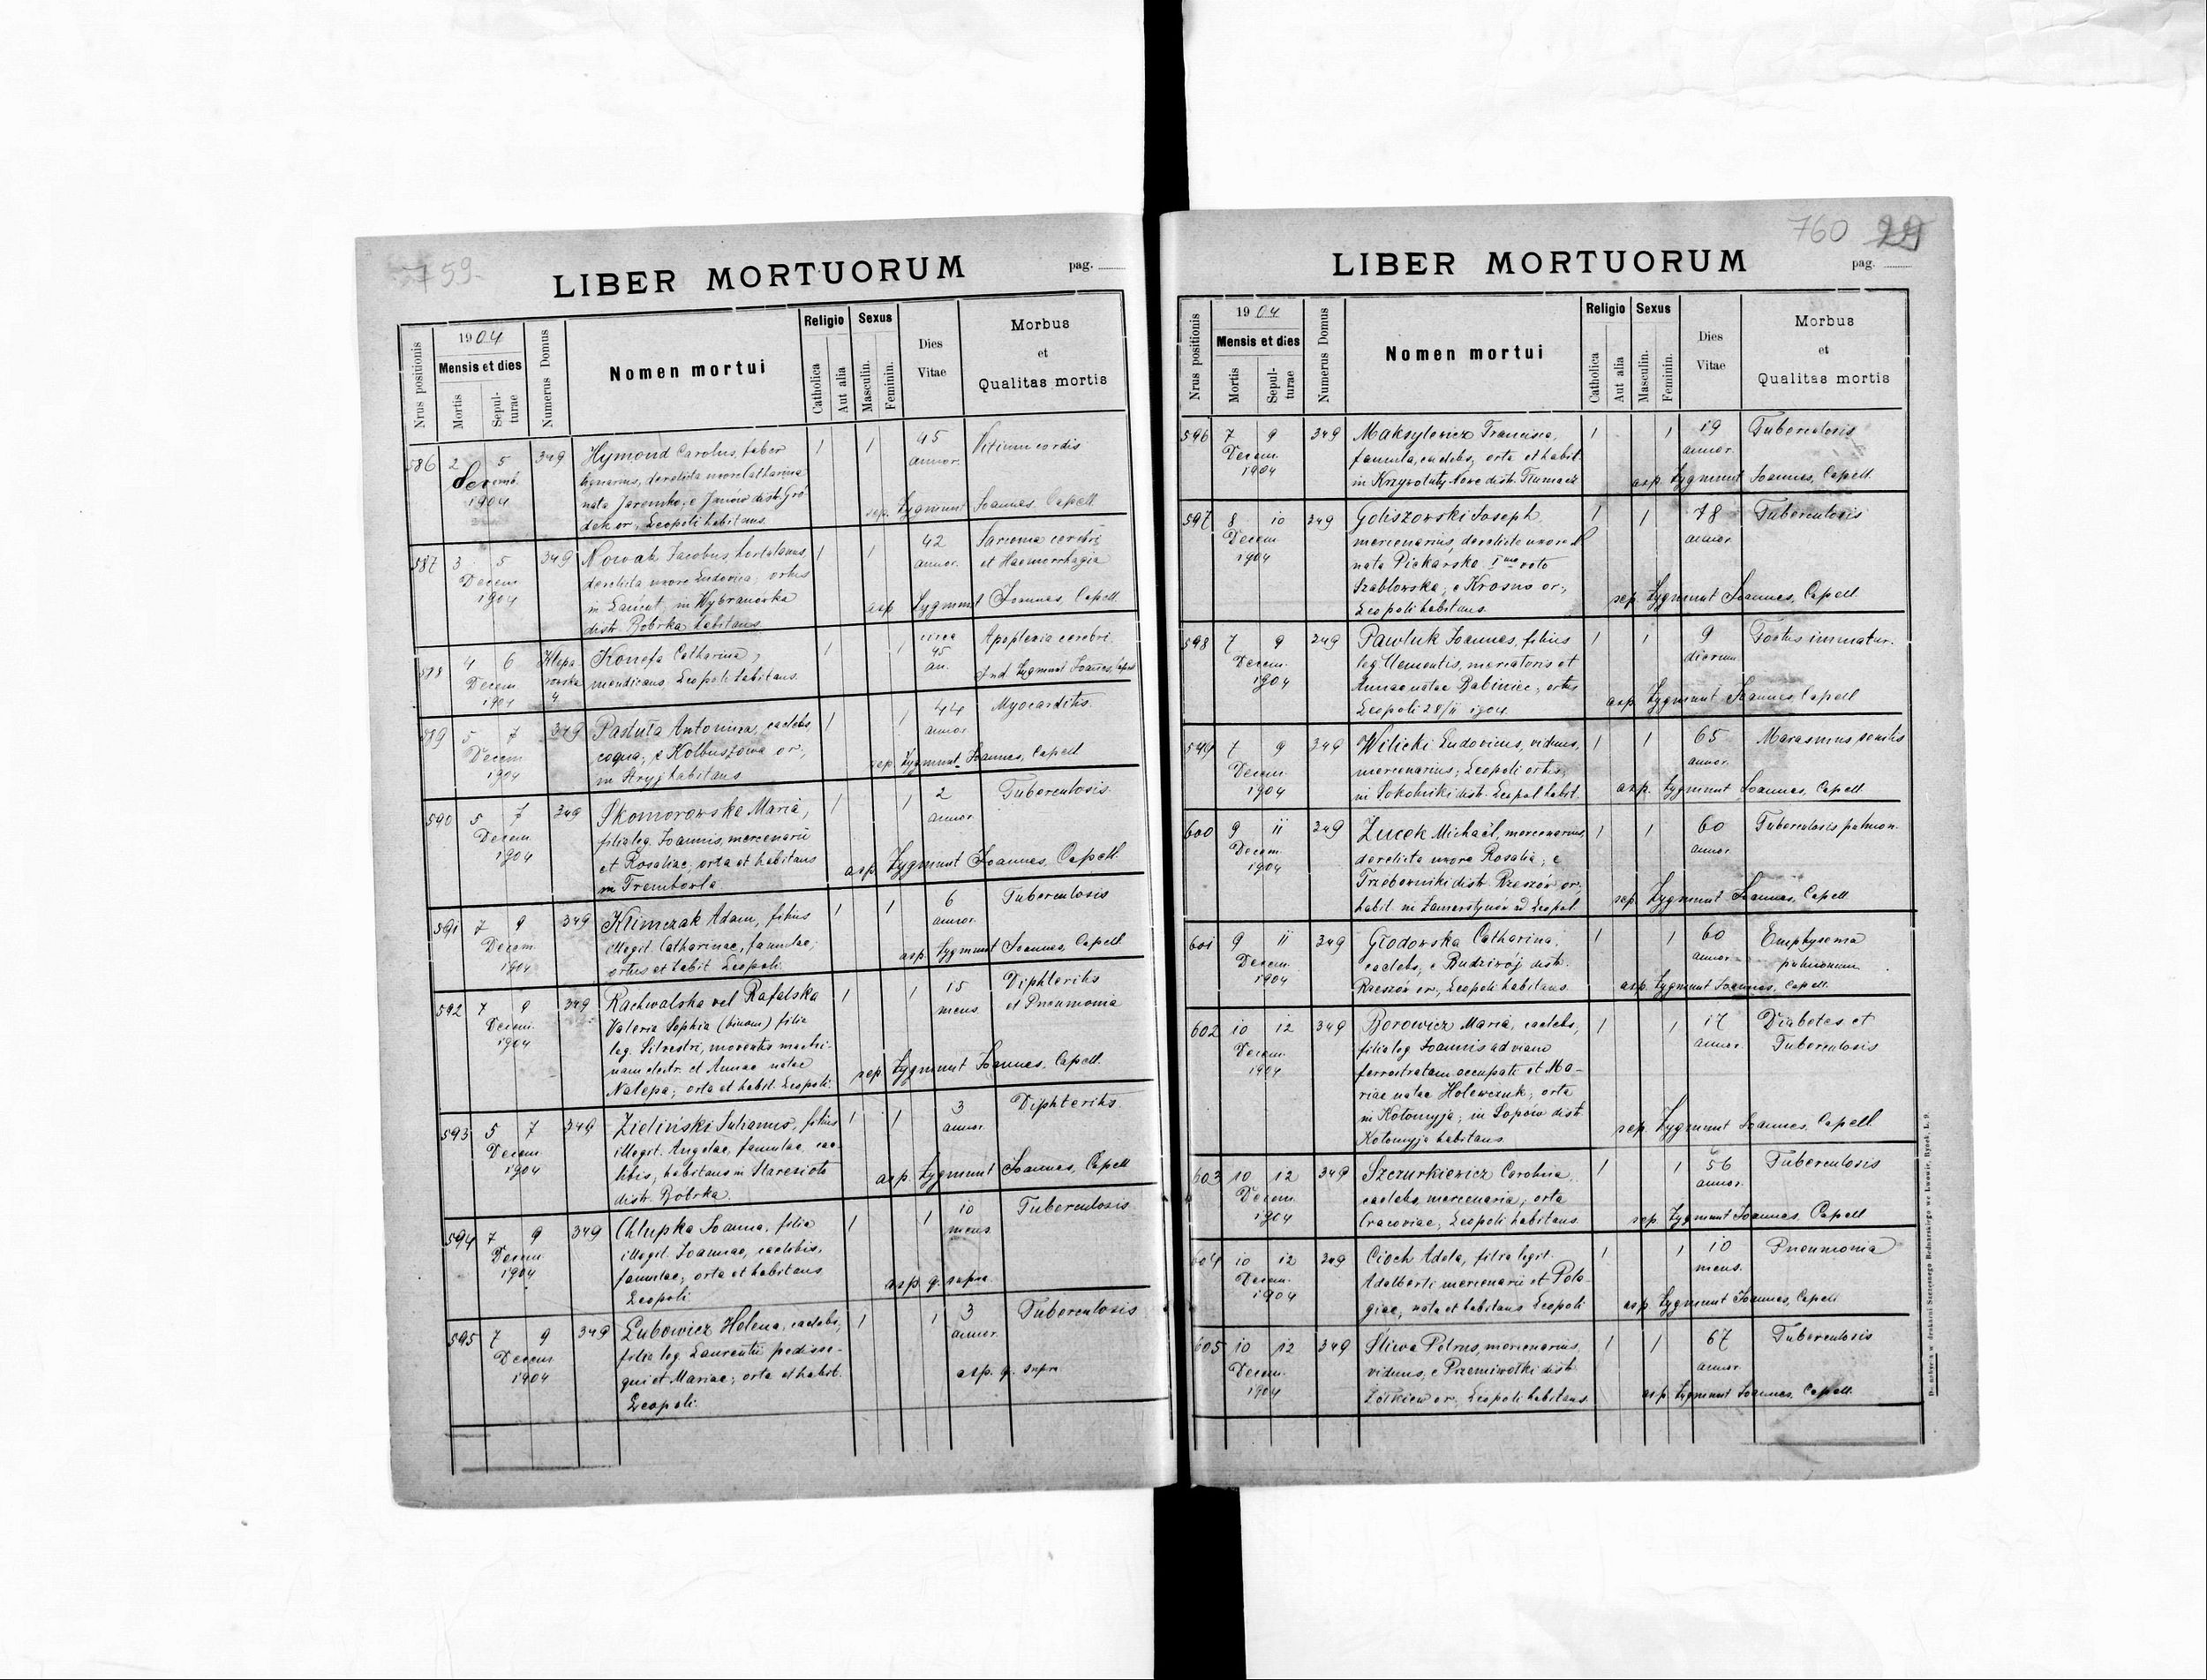 759.
LIBER MORTUORUM
pag.
Nrus positionis
1904
Mensis et dies
Mortis
Sepul-
turae
Numerus Domus
Nomen mortui
Religio
Catholica
Aut alia
Sexus
Masculin.
Feminin.
Dies
Vitae
Morbus
et
Qualitas mortis
586 2 5 349 Hymond Carolus, faber 1 1 45 Vitium cordis
Decemb. lignarius, derelicta uxore Catharina annor.
1904 nata Jaremko, e Janów distr. Gró
dek or., Leopoli habitans. sep. Zygmunt Joannes, Capell.
587 3 5 349 Nowak Jacobus, hortulanus, 1 1 42 Sarcoma cerebri
Decem. derelicta uxore Ludovica, ortus annor. et Haemorrhagia
1904 in Łańcut, in Wybranówka
distr. Bóbrka habitans. asp. Zygmunt Joannes, Capell.
588 4 6 Klepa Konefa Catharina, 1 1 circa Apoplexia cerebri.
Decem. rowska mendicans, Leopoli habitans. 45
1904 4 an. Ind. Zygmunt Joannes, Capell.
589 5 7 349 Pastuła Antonina, caelebs, 1 1 44 Myocarditis.
Decem. coqua, e Kolbuszowa or., annor.
1904 in Stryj habitans sep. Zygmunt Joannes, Capell
590 5 7 349 Skomorowska Maria, 1 1 2 Tuberculosis.
Decem. filia leg. Joannis, mercenarii annor.
1904 et Rosaliae, orta et habitans
in Trembowla asp. Zygmunt Joannes, Capell.
591 7 9 349 Klimczak Adam, filius 1 1 6 Tuberculosis
Decem. illegit. Catharinae, famulae, annor.
1904 ortus et habit. Leopoli. asp. Zygmunt Joannes, Capell
592 7 9 349 Rachwalska vel Rafalska 1 1 15 Diphteritis
Decem. Valeria Sophia (binom) filia mens. et Pneumonia
1904 leg. Silvestri, moventis machi-
nam electr. et Annae natae
Nalepa; orta et habit. Leopoli. sep. Zygmunt Joannes, Capell.
593 5 7 349 Zieliński Julianus, filius 1 1 3 Diphteritis
Decem. illegit. Angelae, famulae, cae- annor.
1904 libis, habitans in Staresioło
distr. Bóbrka. asp. Zygmunt Joannes, Capell
594 7 9 349 Chlupka Joanna, filia 1 1 10 Tuberculosis
Decem. illegit. Joannae, caelibis, mens.
1904 famulae, orta et habitans
Leopoli asp. q. supra.
595 7 9 349 Lubowicz Helena, caelebs, 1 1 3 Tuberculosis
Decem. filia leg. Laurentii pedisse- annor.
1904 qui et Mariae, orta et habit.
Leopoli. asp. q. supr.
760 29
LIBER MORTUORUM
pag.
Nrus positionis
1904
Mensis et dies
Mortis
Sepul-
turae
Numerus Domus
Nomen mortui
Religio
Catholica
Aut alia
Sexus
Masculin.
Feminin.
Dies
Vitae
Morbus
et
Qualitas mortis
596 7 9 349 Maksylewicz Francisca, 1 1 19 Tuberculosis
Decem. famula, caelebs, orta et habit. annor.
1904 in Krzywotuły Nowe distr. Tłumacz asp. Zygmunt Joannes, Capell.
597 8 10 349 Goliszowski Joseph, 1 1 78 Tuberculosis
Decem. mercenarius, derelicta uxore annor.
1904 nata Piekarska
Szablowska; e Krosno or.,
Leopoli habitans. sep. Zygmunt Joannes, Capell.
598 7 9 349 Pawluk Joannes, filius 1 1 9 Foetus immatur.
Decem. leg. Clementis, mercatoris et dierum
1904 Annae natae Babiniec, ortus
Leopoli 28/11 1904. asp. Zygmunt Joannes, Capell
599 7 9 349 Wilicki Ludovicus, viduus, 1 1 65 Marasmus senilis
Decem. mercenarius; Leopoli ortus, annor.
1904 in Sokolniki distr. Leopol habit. asp. Zygmunt Joannes, Capell
600 9 11 349 Zucek Michaël, mercenarius, 1 1 60 Tuberculosis pulmon.
Decem. derelicta uxore Rosalia; e annor.
1904 Trzebowniki distr. Rzeszów or.,
habit. in Zamarstynów ad Leopol. sep. Zygmunt Joannes, Capell
601 9 11 349 Głodowska Catharina, 1 1 60 Emphysema
Decem. caelebs, e Budziwój distr. annor. pulmonum
1904 Rzeszów or., Leopoli habitans. asp. Zygmunt Joannes, Capell.
602 10 12 349 Borowicz Maria, caelebs, 1 1 17 Diabetes et
Decem. filia leg. Joannis ad viam annor. Tuberculosis
1904 ferrostratam occupati et Ma-
riae natae Holewczuk; orta
in Kołomyja, in Sopów distr.
Kołomyja habitans. sep. Zygmunt Joannes, Capell
603 10 12 349 Szczurkiewicz Carolina, 1 1 56 Tuberculosis
Decem. caelebs, mercenaria, orta annor.
1904 Cracoviae, Leopoli habitans. sep. Zygmunt Joannes, Capell
604 10 12 349 Cioch Adela, filia legit. 1 1 10 Pneumonia
Decem. Adalberti mercenarii et Pela- mens.
1904 giae, nata et habitans Leopoli asp. Zygmunt Joannes, Capell
605 10 12 349 Śliwa Petrus, mercenarius, 1 1 67 Tuberculosis
Decem. viduus, e Przemiwółki distr. annor.
1904 Żółkiew or., Leopoli habitans. asp. Zygmunt Joannes, Capell.
w drukarni Szczęsnego Bednarskiego we Lwowie, Rynek, L. 9.